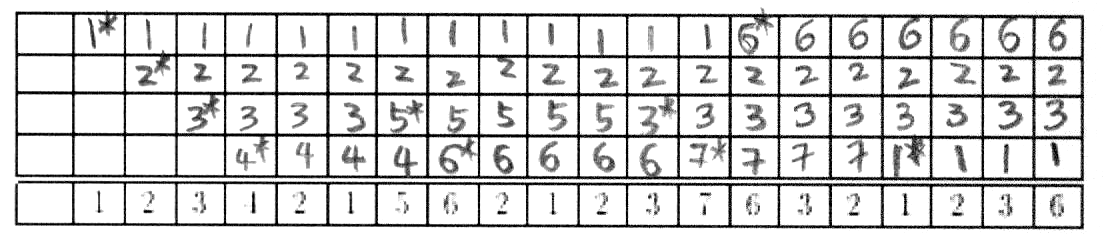 1* 1 1 1 1 1 1 1 1 1 1 1 1 6* 6 6 6 6 6 6
2* 2 2 2 2 2 2 2 2 2 2 2 2 2 2 2 2 2 2
3* 3 3 3 5* 5 5 5 5 3* 3 3 3 3 3 3 3 3
4* 4 4 4 6* 6 6 6 6 7* 7 7 7 1* 1 1 1
1 2 3 4 2 1 5 6 2 1 2 3 7 6 3 2 1 2 3 6